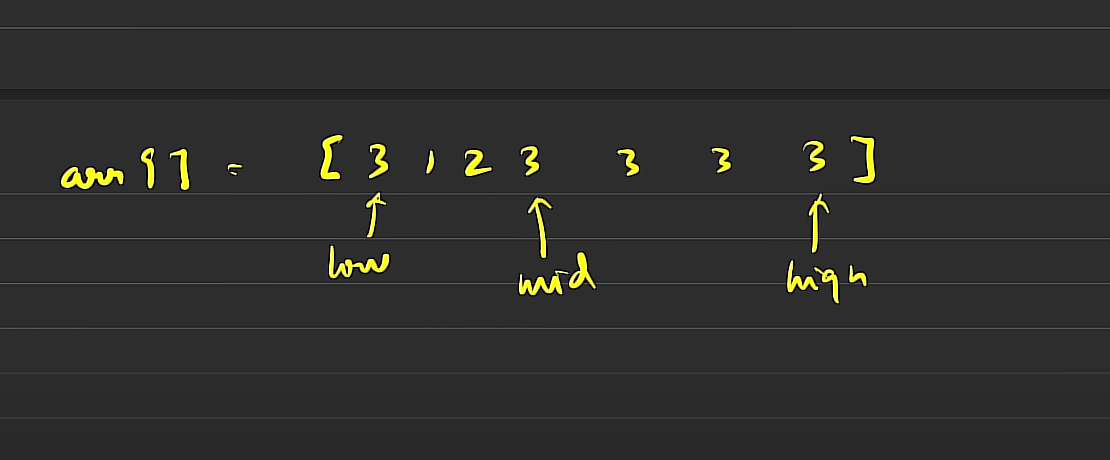 arr[] = [ 3 1 2 3 3 3 3 ]
low mid high